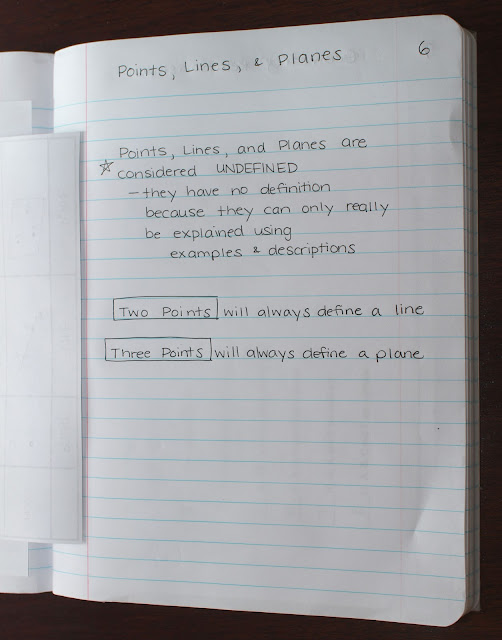 Points, Lines, & Planes
6
Points, Lines, and Planes are
☆ considered UNDEFINED
- they have no definition
because they can only really
be explained using
examples & descriptions
Two Points will always define a line
Three Points will always define a plane